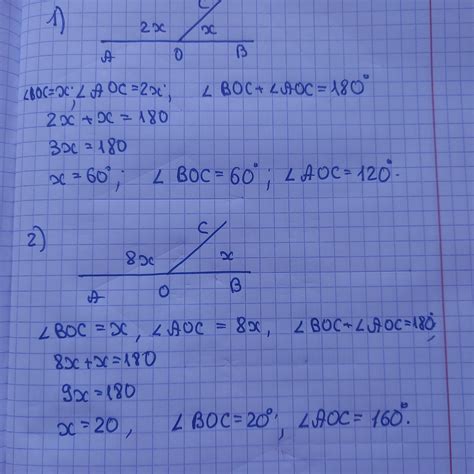 1)
C
2x x
A O B
∠BOC=x; ∠AOC=2x, ∠BOC+∠AOC=180°
2x+x=180
3x=180
x=60°; ∠BOC=60°; ∠AOC=120°.
2)
C
8x x
A O B
∠BOC=x, ∠AOC=8x, ∠BOC+∠AOC=180°,
8x+x=180
9x=180
x=20, ∠BOC=20°; ∠AOC=160°.